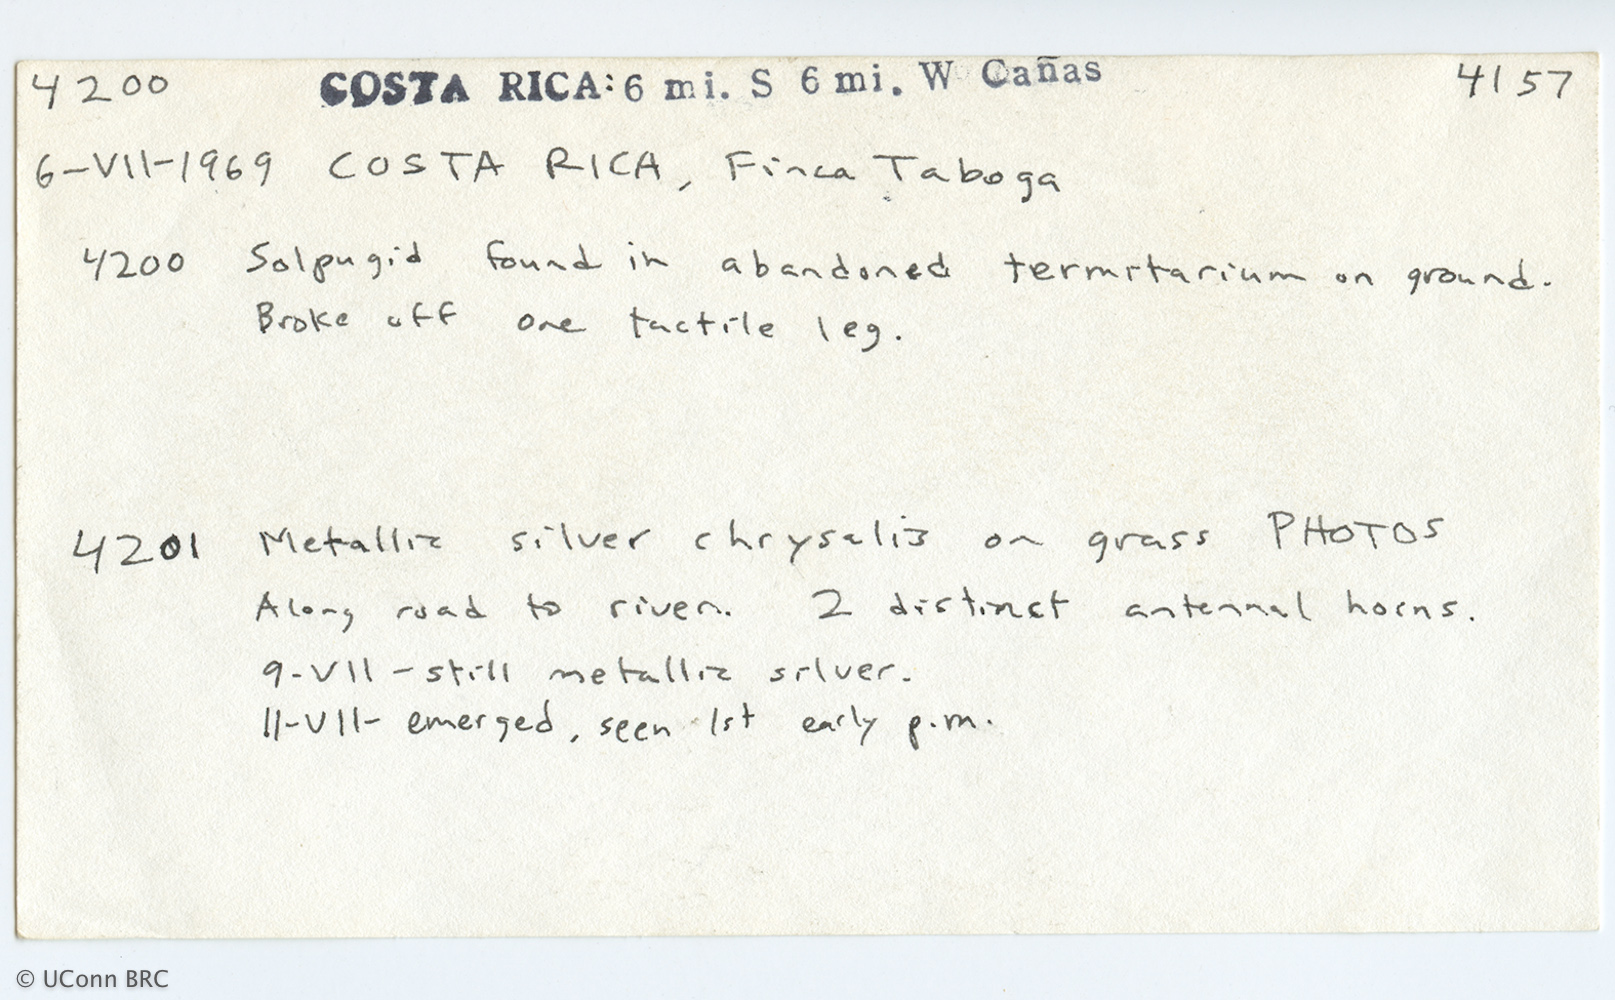 4200 COSTA RICA: 6 mi. S 6 mi. W Cañas 4157
6-VII-1969 COSTA RICA, Finca Taboga
4200 Solpugid found in abandoned termitarium on ground.
Broke off one tactile leg.
4201 Metallic silver chrysalis on grass PHOTOS
Along road to river. 2 distinct antennal horns.
9-VII-still metallic silver.
11-VII- emerged, seen 1st early p.m.
© UConn BRC